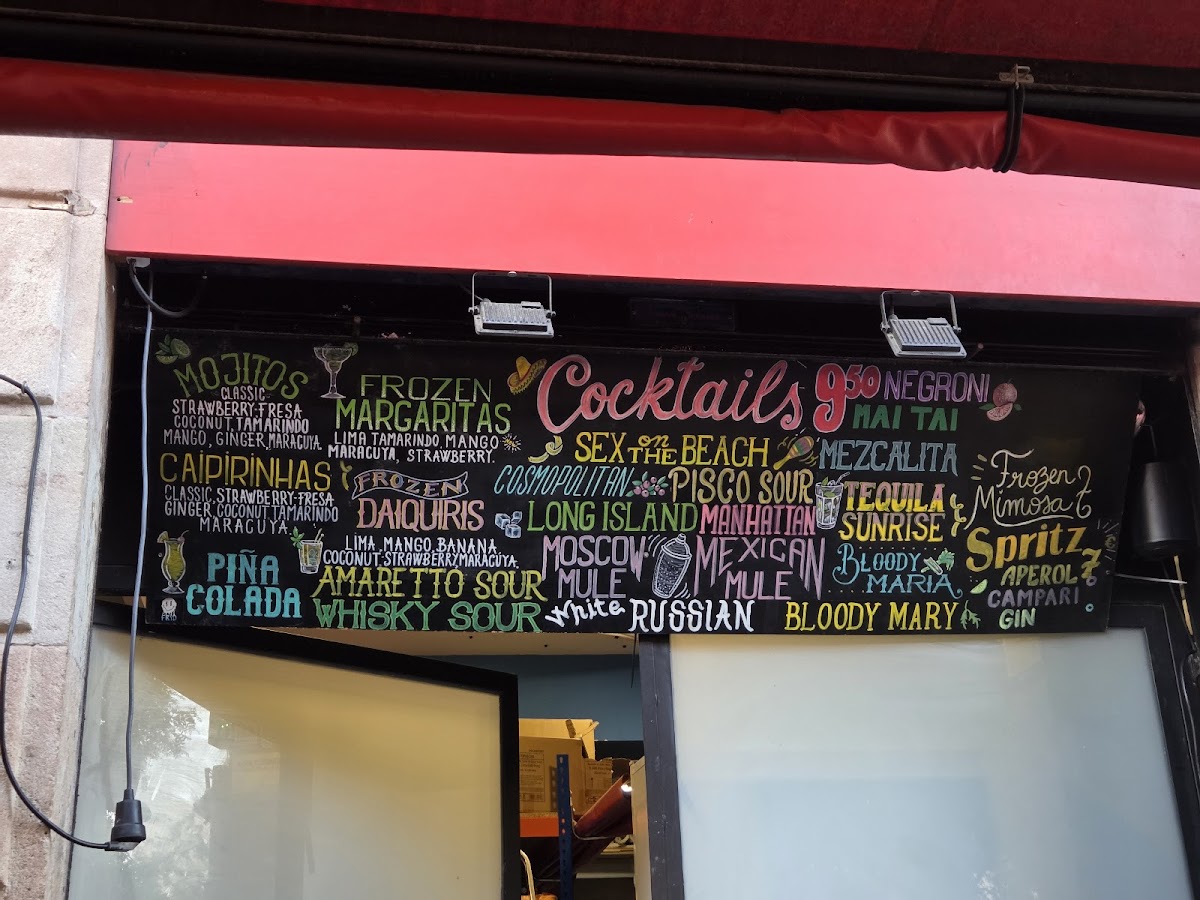 MOJITOS
CLASSIC
STRAWBERRY-FRESA
COCONUT, TAMARINDO
MANGO, GINGER, MARACUYA.
CAIPIRINHAS
CLASSIC, STRAWBERRY-FRESA
GINGER, COCONUT, TAMARINDO
MARACUYA
PIÑA
COLADA
FROZEN
MARGARITAS
LIMA, TAMARINDO, MANGO
MARACUYA, STRAWBERRY.
FROZEN
DAIQUIRIS
LIMA, MANGO, BANANA,
COCONUT, STRAWBERRY, MARACUYA.
AMARETTO SOUR
WHISKY SOUR
Cocktails 9,50
NEGRONI
MAI TAI
SEX on THE BEACH
MEZCALITA
COSMOPOLITAN
PISCO SOUR
TEQUILA
SUNRISE
LONG ISLAND
MANHATTAN
MOSCOW
MULE
MEXICAN
MULE
BLOODY
MARIA
White RUSSIAN
BLOODY MARY
Frozen
Mimosa
Spritz
APEROL
CAMPARI
GIN